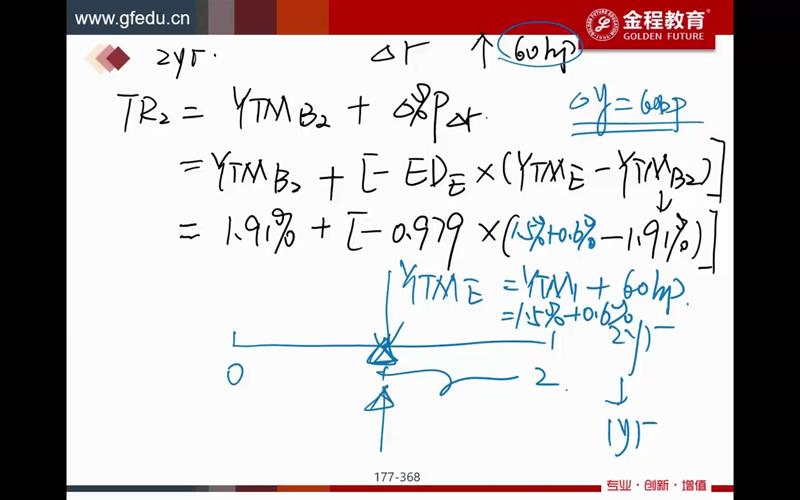 www.gfedu.cn
金程教育
GOLDEN FUTURE
2yr. Δr ↑ 60bp
TR₂ = YTM_B₂ + Δ%P_Δr. Δy = 60bp
= YTM_B₂ + [- ED_E × (YTM_E - YTM_B₂)]
= 1.91% + [- 0.979 × (1.5%+0.6% - 1.91%)]
YTM_E = YTM₁ + 60bp.
= 1.5% + 0.6%
0 1 2yr
2
1yr
177-368
专业·创新·增值